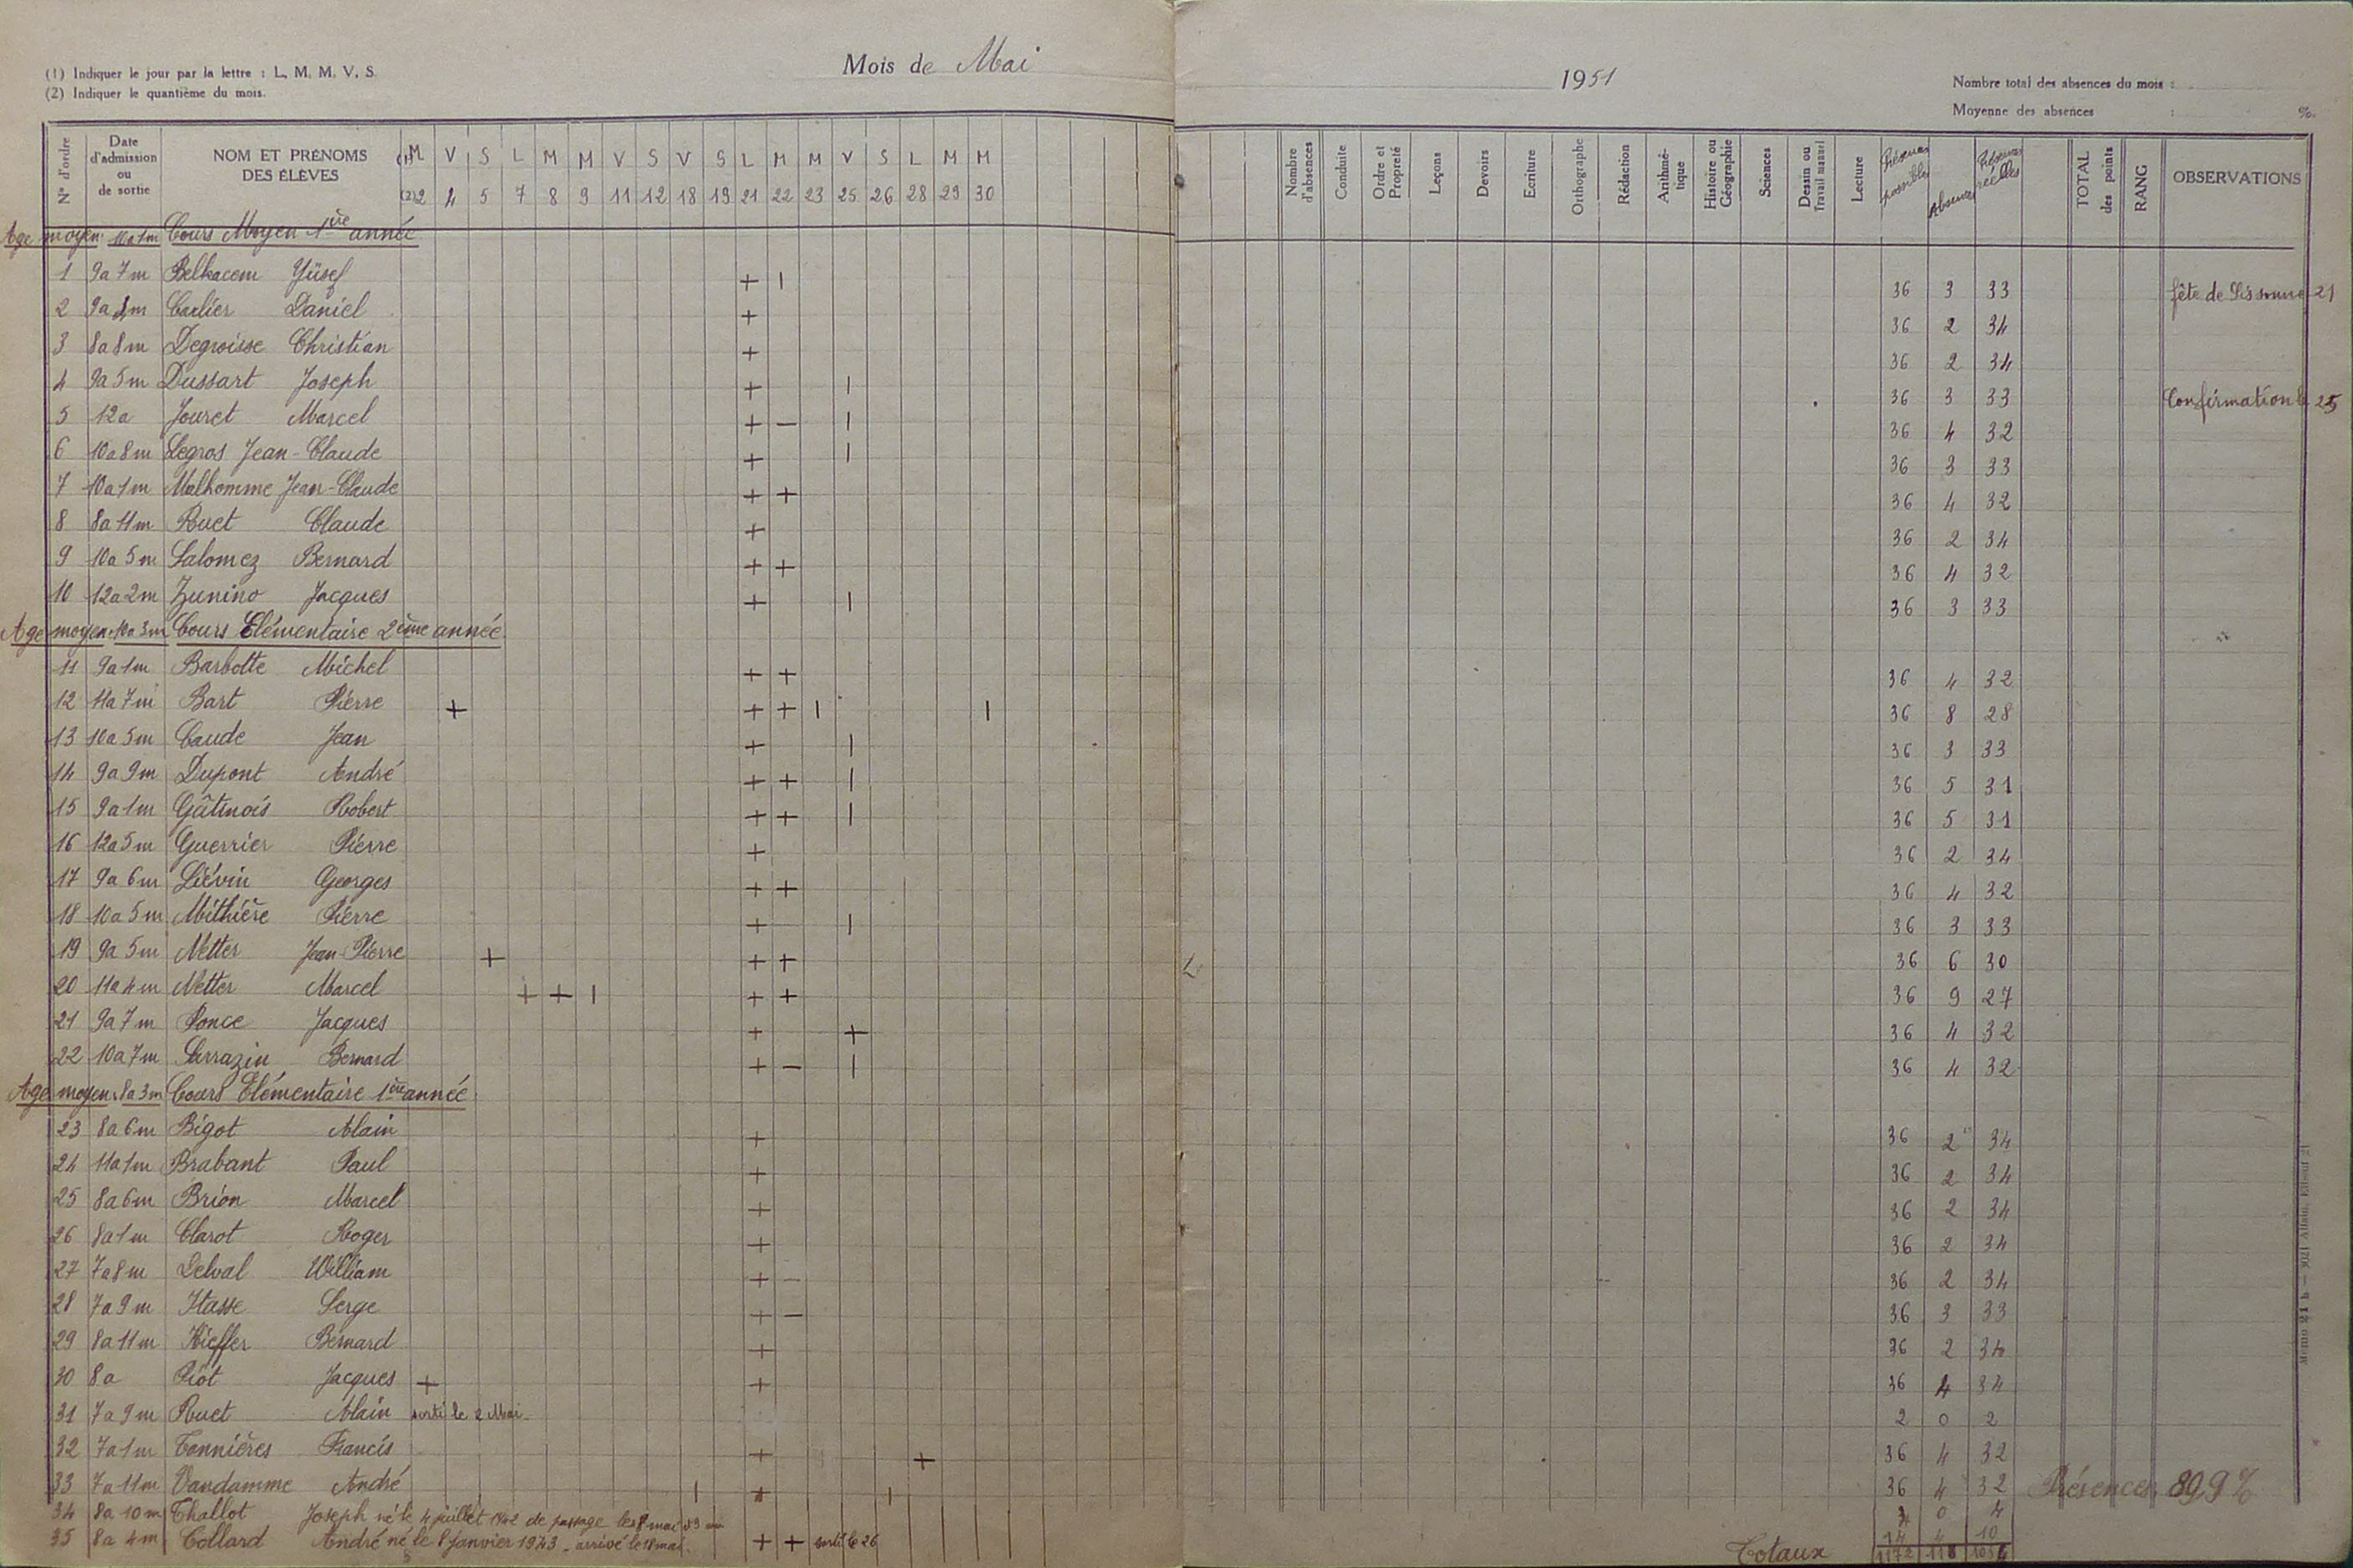 (1) Indiquer le jour par la lettre : L, M, M, V, S.
(2) Indiquer le quantième du mois.
Mois de Mai
1951
Nombre total des absences du mois :
Moyenne des absences : %.
N° d'ordre Date d'admission ou de sortie NOM ET PRÉNOMS DES ÉLÈVES (1) M V S L M M V S V S L M M V S L M M Nombre d'absences Conduite Ordre et Propreté Leçons Devoirs Ecriture Orthographe Rédaction Arithmé-tique Histoire ou Géographie Sciences Dessin ou Travail manuel Lecture Présences possibles Absences Présences réelles TOTAL des points RANG OBSERVATIONS
(2) 2 4 5 7 8 9 11 12 18 19 21 22 23 25 26 28 29 30
Age moyen 10a1m Cours Moyen 1ère année
1 9a 7m Belkacem Yüsef + | 36 3 33 fête de Sissonne 21
2 9a 1m Carlier Daniel + 36 2 34
3 8a 8m Degroisse Christian + 36 2 34
4 9a 5m Dussart Joseph + | 36 3 33 Confirmation le 25
5 12a Jouret Marcel + − | 36 4 32
6 10a 8m Legros Jean-Claude + | 36 3 33
7 10a 1m Malhomme Jean-Claude + + 36 4 32
8 8a 11m Ruet Claude + 36 2 34
9 10a 5m Salomez Bernard + + 36 4 32
10 12a 2m Zunino Jacques + | 36 3 33
Age moyen 10a 3m Cours Elémentaire 2ème année
11 9a 1m Barbotte Michel + + 36 4 32
12 11a 7m Bart Pierre + + + | | 36 8 28
13 10a 5m Caude Jean + | 36 3 33
14 9a 9m Dupont André + + | 36 5 31
15 9a 1m Gâtinois Robert + + | 36 5 31
16 12a 5m Guerrier Pierre + 36 2 34
17 9a 6m Liévin Georges + + 36 4 32
18 10a 5m Mithière Pierre + | 36 3 33
19 9a 5m Netter Jean-Pierre + + + 36 6 30
20 11a 4m Netter Marcel + + | + + 36 9 27
21 9a 7m Ponce Jacques + + 36 4 32
22 10a 7m Sarrazin Bernard + − | 36 4 32
Age moyen 8a 3m Cours Elémentaire 1ère année
23 8a 6m Bigot Alain + 36 2 34
24 11a 1m Brabant Paul + 36 2 34
25 8a 6m Brion Marcel + 36 2 34
26 8a 1m Clarot Roger + 36 2 34
27 7a 8m Delval William + − 36 2 34
28 7a 9m Itasse Serge + − 36 3 33
29 8a 11m Kieffer Bernard + 36 2 34
30 8a Piot Jacques + + 36 4 34
31 7a 9m Ruet Alain sorti le 2 Mai 2 0 2
32 7a 1m Tonnières Francis + + 36 4 32
33 7a 11m Vandamme André | + | 36 4 32 Présences 89,9 %
34 8a 10m Thallot Joseph né le 4 juillet 1942 de passage les 8 mai 0 4
35 8a 4m Collard André né le 8 janvier 1943 - arrivé le 18 mai. + + sorti le 26 14 4 10
Totaux 1172 118